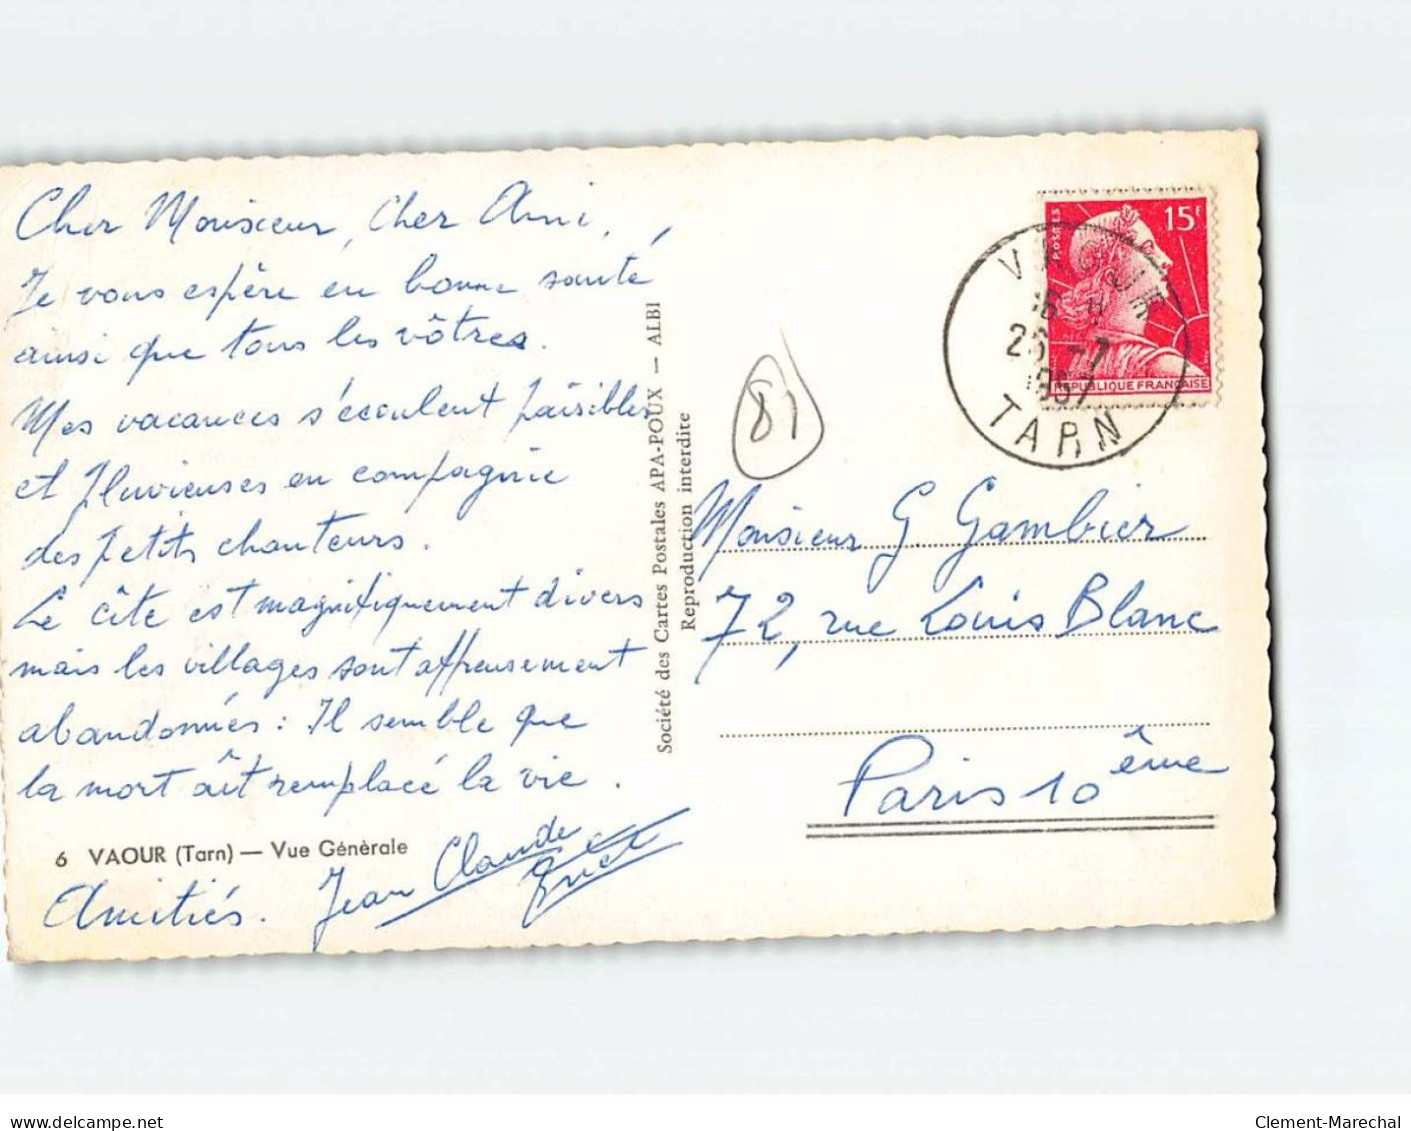 Cher Monsieur, Cher Ami,
Je vous espère en bonne santé
ainsi que tous les vôtres.
Mes vacances s'écoulent paisibles
et pluvieuses en compagnie
des petits chanteurs.
Le cîte est magnifiquement divers
mais les villages sont affreusement
abandonnés : Il semble que
la mort aît remplacé la vie.
6 VAOUR (Tarn) — Vue Générale
Amitiés. Jean Claude
Société des Cartes Postales APA-POUX — ALBI
Reproduction interdite
81
POSTES
15F
REPUBLIQUE FRANÇAISE
VAOUR
TARN
Monsieur G Gambier
72, rue Louis Blanc
Paris 10 ème
delcampe.net
Clement-Marechal